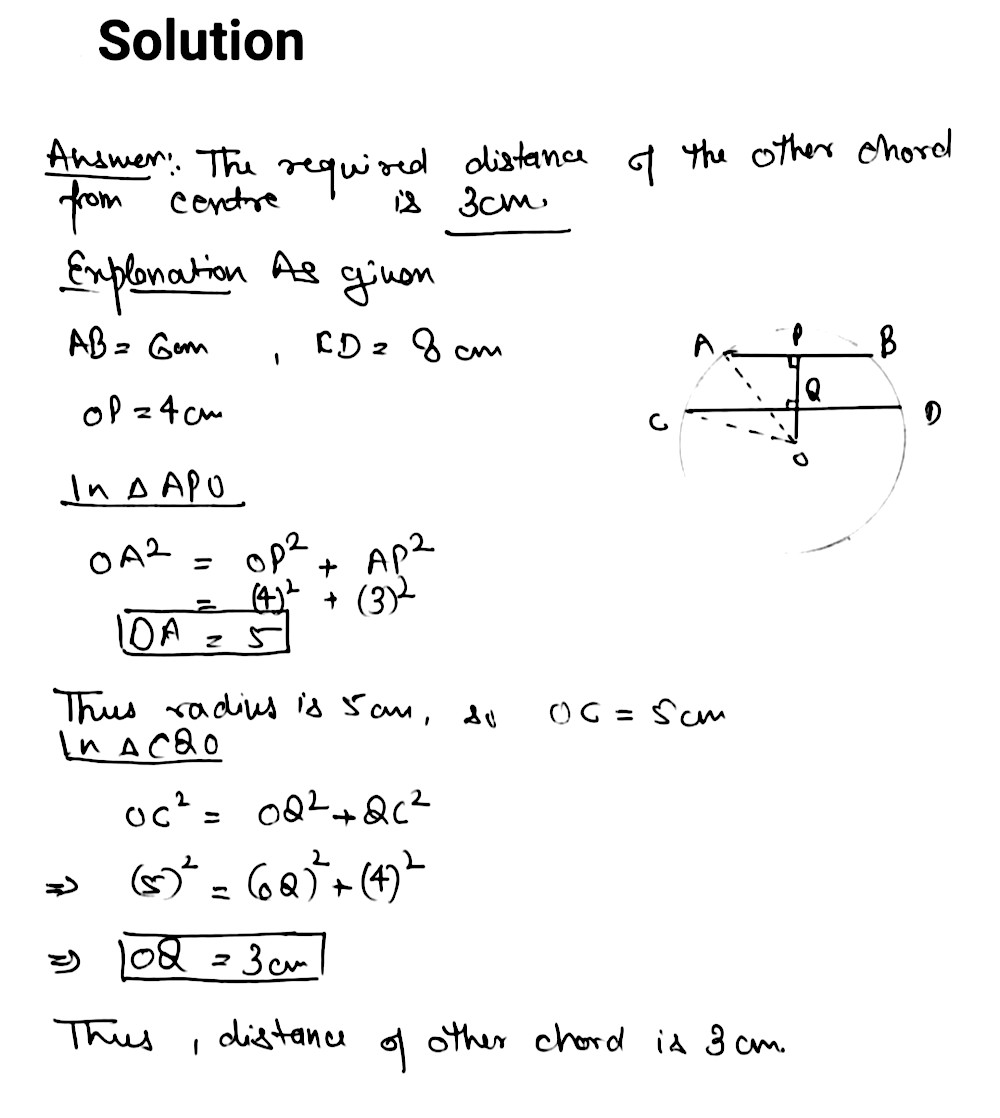 Solution
Answer:. The required distance of the other chord
from centre is 3cm.
Explanation As given
AB = 6cm , CD = 8 cm
OP = 4cm
In Δ APO
OA² = OP² + AP²
= (4)² + (3)²
OA = 5
Thus radius is 5cm, so OC = 5cm
In Δ CQO
OC² = OQ² + QC²
⇒ (5)² = (OQ)² + (4)²
⇒ OQ = 3cm
Thus , distance of other chord is 3 cm.
A P B
Q
C D
O